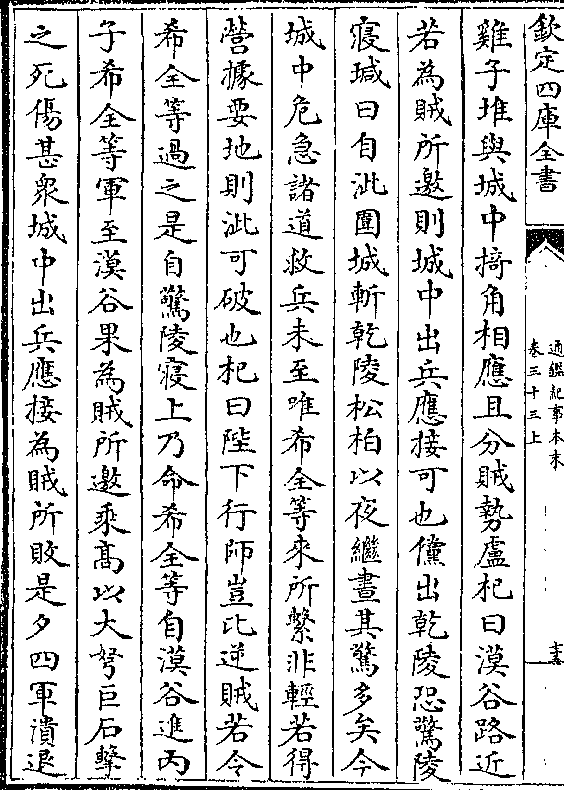 欽定四庫全書
通鑑紀事本末
卷三十三上
雞子堆與城中掎角相應且分賊勢盧杞曰漠谷路近
若為賊所邀則城中出兵應接可也儻出乾陵恐驚陵
寢瑊曰自泚圍城斬乾陵松柏以夜繼晝其驚多矣今
城中危急諸道救兵未至唯希全等來所繫非輕若得
營據要地則泚可破也杞曰陛下行師豈比逆賊若令
希全等過之是自驚陵寢上乃命希全等自漠谷進丙
子希全等軍至漠谷果為賊所邀乘高以大弩巨石擊
之死傷甚衆城中出兵應接為賊所敗是夕四軍潰退